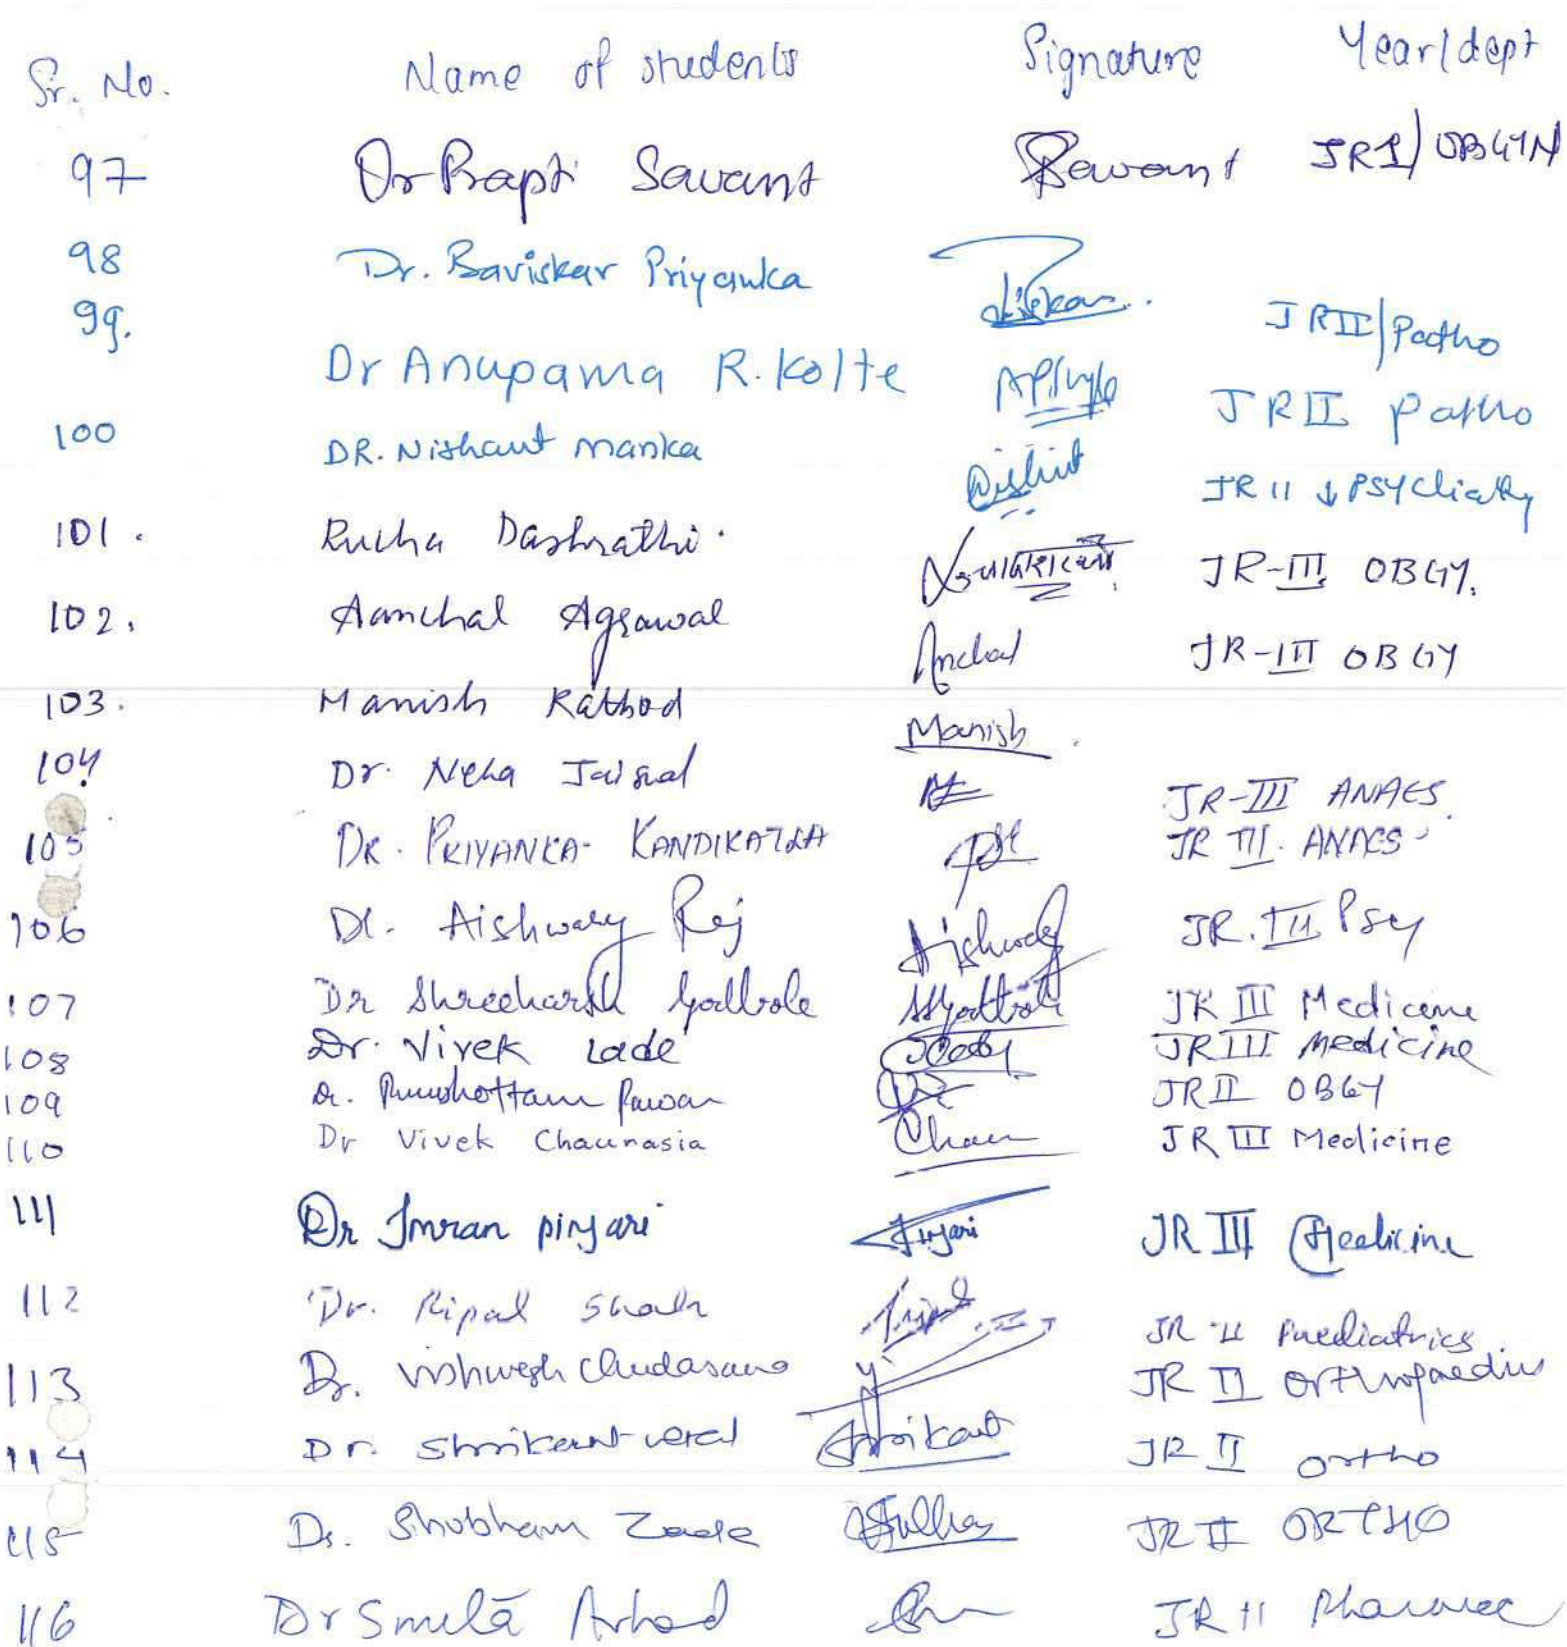 Sr. No. Name of students Signature Year/dept
97 Dr Prapti Savant Savant JR1/OBGYN
98 Dr. Baviskar Priyanka JRII/Patho
99. Dr Anupama R. Kolte JRII Patho
100 DR. Nishant Manka Nishant JR II PSYchiatry
101. Rucha Dashrathi. JR-III OBGY.
102. Aanchal Agrawal Anchal JR-III OBGY
103. Manish Rathod Manish
104 Dr. Neha Jaiswal JR-III ANAES.
105 DR. PRIYANKA KANDIKATLA JR III. ANAES
106 Dr. Aishwary Raj Aishwary JR. III Psy
107 Dr Shreeharsh Godbole JR III Medicine
108 Dr. Vivek Lade JRIII Medicine
109 Dr. Purushottam Pawar JRII OBGY
110 Dr Vivek Chaurasia JR III Medicine
111 Dr Imran pinjari Pinjari JR III Medicine
112 Dr. Ripal Shah JR II Paediatrics
113 Dr. Vishwesh Chudasama JR II Orthopaedics
114 Dr. Shrikant Shrikant JR II ortho
115 Dr. Shubham Zade JR II ORTHO
116 Dr Smita JR II